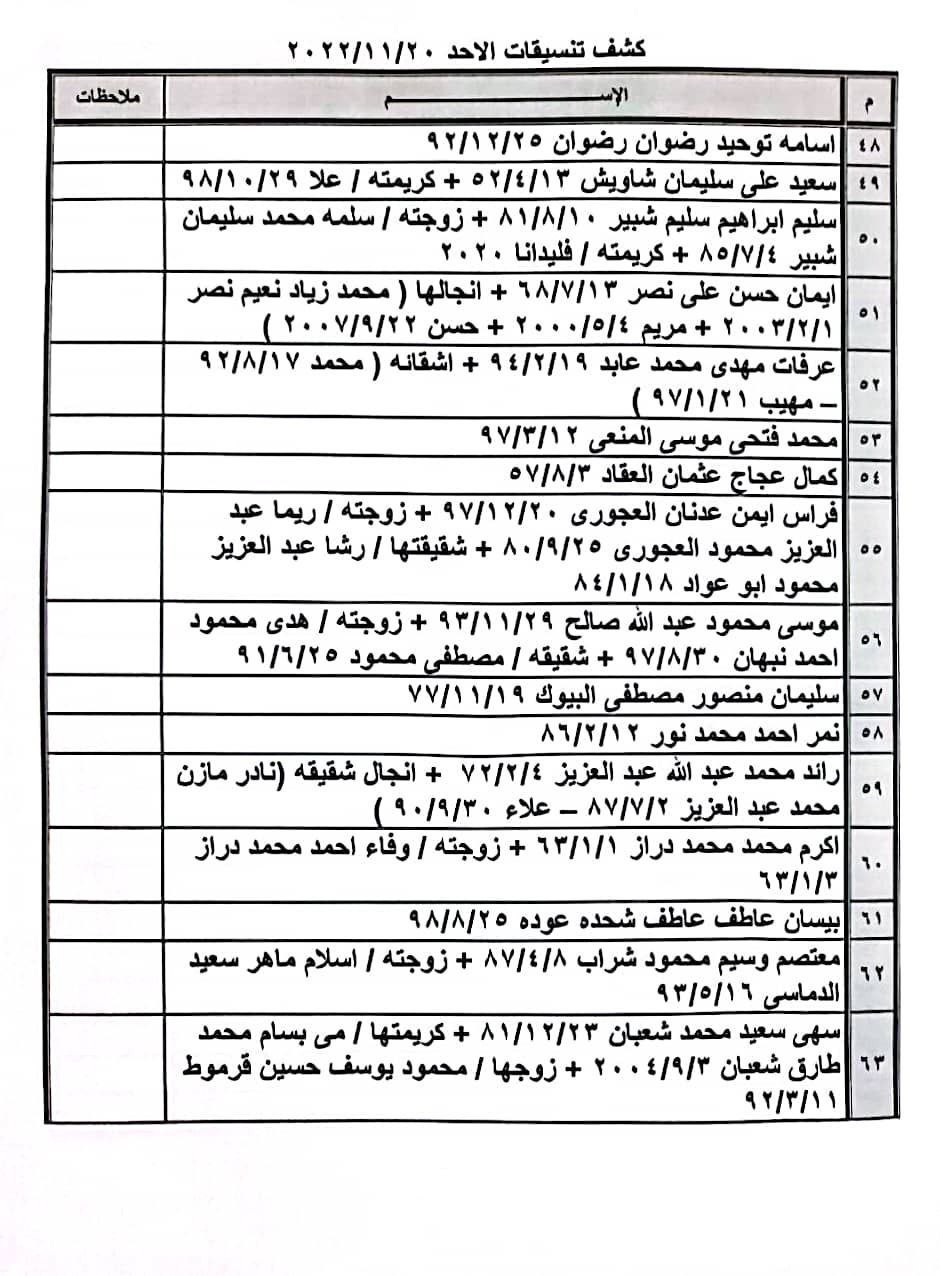 كشف تنسيقات الاحد ٢٠٢٢/١١/٢٠
م الإســـــــــــــم ملاحظات
٤٨ اسامه توحيد رضوان رضوان ٩٢/١٢/٢٥
٤٩ سعيد على سليمان شاويش ٥٢/٤/١٣ + كريمته / علا ٩٨/١٠/٢٩
٥٠ سليم ابراهيم سليم شبير ٨١/٨/١٠ + زوجته / سلمه محمد سليمان
شبير ٨٥/٧/٤ + كريمته / فليدانا ٢٠٢٠
٥١ ايمان حسن على نصر ٦٨/٧/١٣ + انجالها ( محمد زياد نعيم نصر
٢٠٠٣/٢/١ + مريم ٢٠٠٠/٥/٤ + حسن ٢٠٠٧/٩/٢٢ )
٥٢ عرفات مهدى محمد عابد ٩٤/٢/١٩ + اشقائه ( محمد ٩٢/٨/١٧
– مهيب ٩٧/١/٢١ )
٥٣ محمد فتحى موسى المنعى ٩٧/٣/١٢
٥٤ كمال عجاج عثمان العقاد ٥٧/٨/٣
٥٥ فراس ايمن عدنان العجورى ٩٧/١٢/٢٠ + زوجته / ريما عبد
العزيز محمود العجورى ٨٠/٩/٢٥ + شقيقتها / رشا عبد العزيز
محمود ابو عواد ٨٤/١/١٨
٥٦ موسى محمود عبد الله صالح ٩٣/١١/٢٩ + زوجته / هدى محمود
احمد نبهان ٩٧/٨/٣٠ + شقيقه / مصطفى محمود ٩١/٦/٢٥
٥٧ سليمان منصور مصطفى البيوك ٧٧/١١/١٩
٥٨ نمر احمد محمد نور ٨٦/٢/١٢
٥٩ رائد محمد عبد الله عبد العزيز ٧٢/٢/٤ + انجال شقيقه (نادر مازن
محمد عبد العزيز ٨٧/٧/٢ – علاء ٩٠/٩/٣٠ )
٦٠ اكرم محمد محمد دراز ٦٣/١/١ + زوجته / وفاء احمد محمد دراز
٦٣/١/٣
٦١ بيسان عاطف عاطف شحده عوده ٩٨/٨/٢٥
٦٢ معتصم وسيم محمود شراب ٨٧/٤/٨ + زوجته / اسلام ماهر سعيد
الدماسى ٩٣/٥/١٦
٦٣ سهى سعيد محمد شعبان ٨١/١٢/٢٣ + كريمتها / مى بسام محمد
طارق شعبان ٢٠٠٤/٩/٣ + زوجها / محمود يوسف حسين قرموط
٩٢/٣/١١